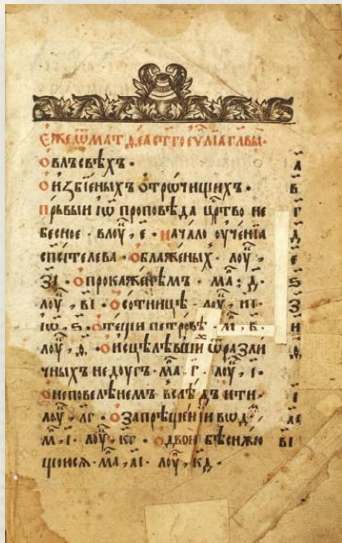 Є҆́же ѿ маⷮ҇ дѣⷧ҇ а҆ ст҃го є҆ѵⷢ҇лїа главы̀ ·
Ѻ҆ влъсвѣхъ · а҃
Ѻ҆ и҆збїеныхъ ѻ҆трочищихъ · в҃
Прьвыи і҆ѡ҃ проповѣда црⷭ҇тво не г҃
бесное · влоу, е҃ · начало оученїа д҃
спсителева · ѻ҆ блаженыхъ · лоу, е҃
з҃і · ѻ҆ прокаженѣмъ · ма҃ · д҃ ѕ҃
лоу, в҃і · ѻ҆ сотницѣ · лоу, з҃
і҆ѡ҃ · ѕ҃ · ѻ҆ тещи петровѣ · м҃ · в҃ · и҃
лоу, ѳ҃ · ѻ҆ исцѣлѣвшїи ѿ разли ѳ҃
чныхъ недоугъ · ма҃ · г҃ · лоу, і҃ ·
ѻ҆ неповелѣнемъ вслѣдъ ити
лоу · лг҃ · ѻ҆ запрѣщенїи вѡд · а҃і
м҃ · і҃ · лоу, кг҃ · ѻ҆ двою бѣснѹю в҃і
щоюсѧ · ма҃, а҃і · лоу, кд҃ ·